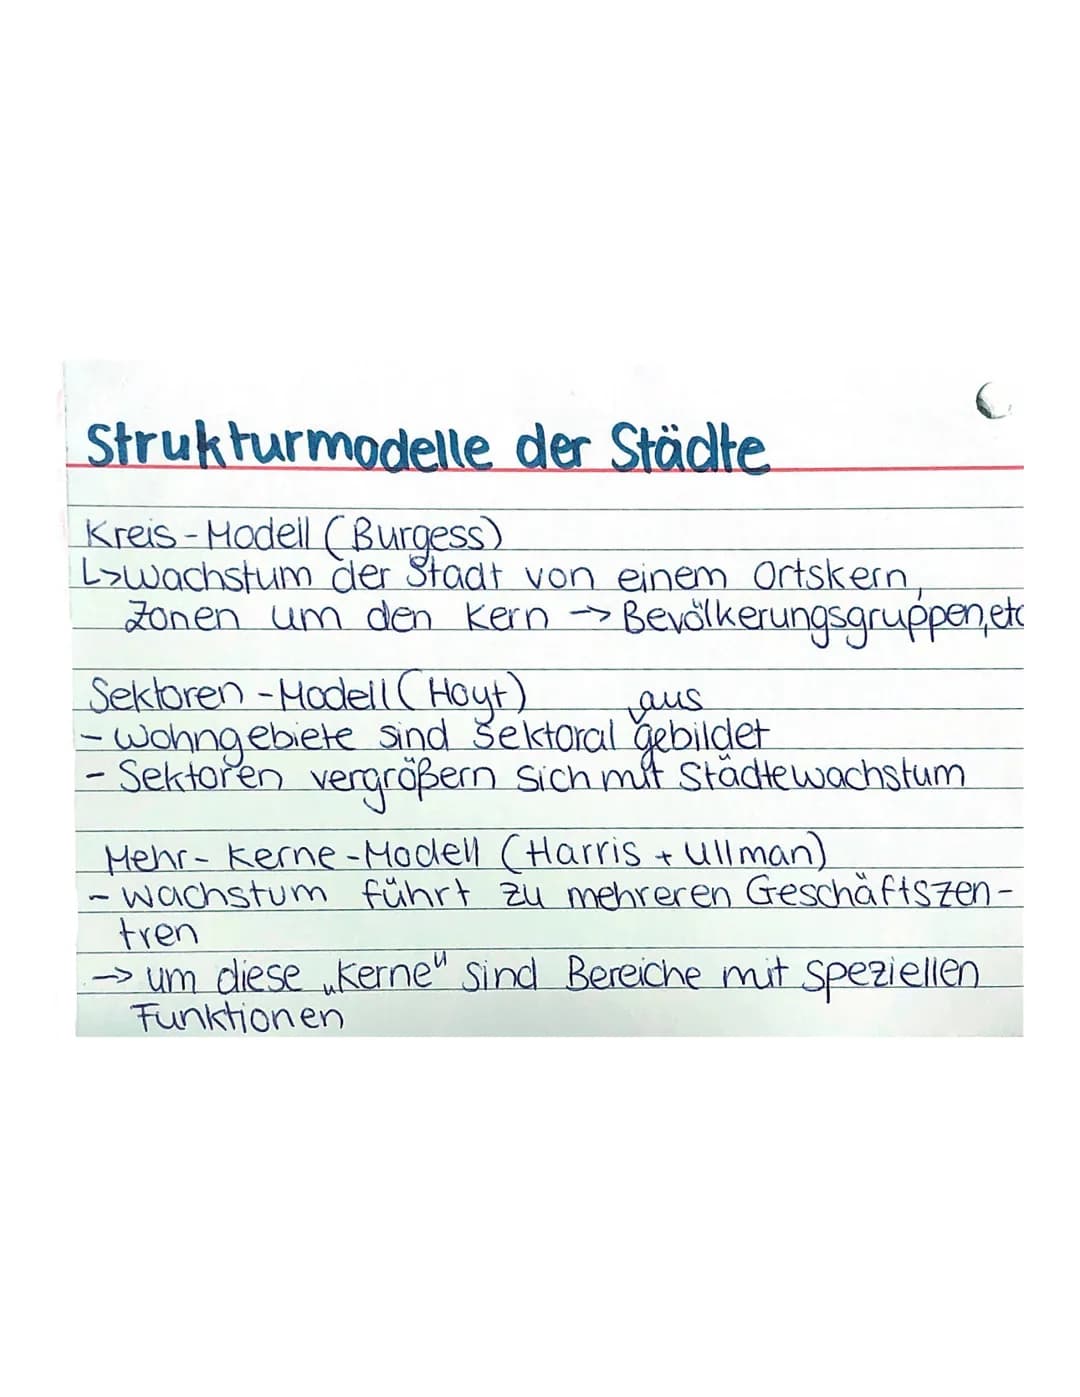 Strukturmodelle der Städte
Kreis-Modell (Burgess)
↳Wachstum der Stadt von einem Ortskern,
Zonen um den Kern → Bevölkerungsgruppen, etc
Sektoren-Modell (Hoyt)
aus
- Wohngebiete sind sektoral gebildet
- Sektoren vergrößern sich mit Städtewachstum
Mehr-Kerne-Modell (Harris + Ullman)
- Wachstum führt zu mehreren Geschäftszen-
tren
→ um diese „Kerne" sind Bereiche mit speziellen
Funktionen